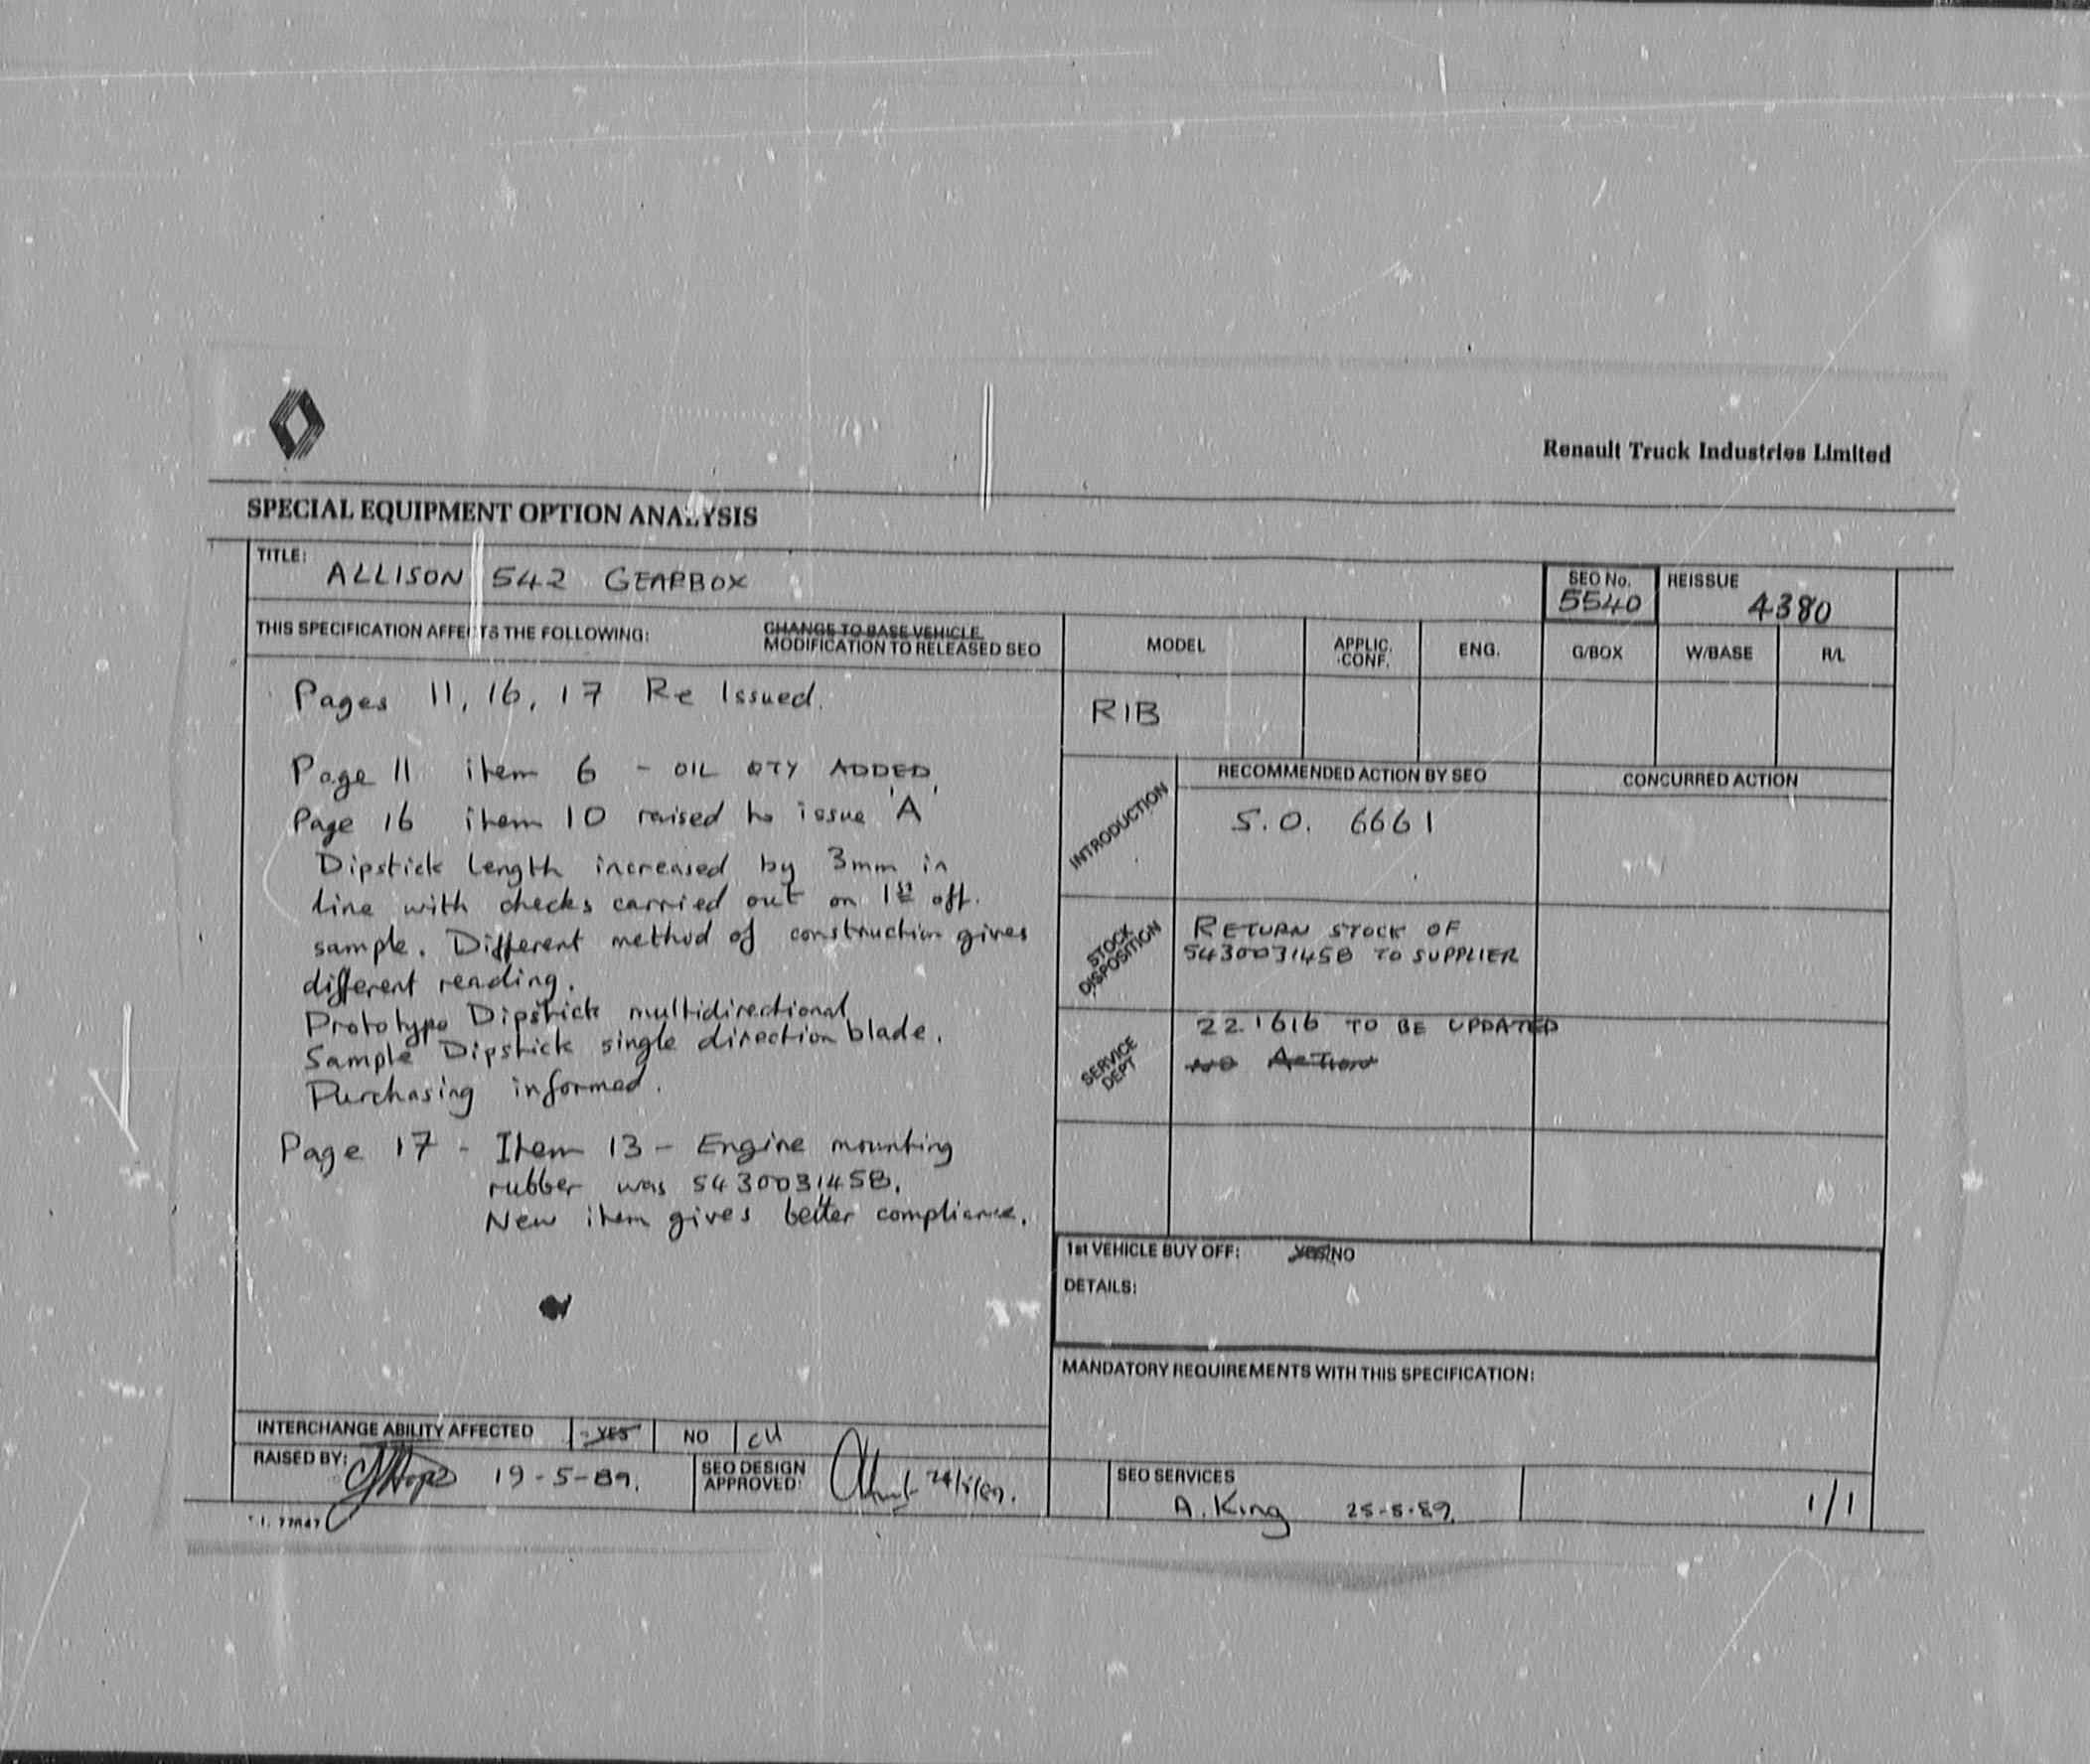 Renault Truck Industries Limited
SPECIAL EQUIPMENT OPTION ANALYSIS
TITLE: ALLISON 542 GEARBOX
SEO No. 5540
REISSUE 4380
THIS SPECIFICATION AFFECTS THE FOLLOWING:
CHANGE TO BASE VEHICLE
MODIFICATION TO RELEASED SEO
MODEL APPLIC. CONF. ENG. G/BOX W/BASE R/L
Pages 11, 16, 17 Re Issued.
Page 11 item 6 - OIL QTY ADDED
Page 16 item 10 raised to issue 'A'
Dipstick length increased by 3mm in
line with checks carried out on 1st off.
sample. Different method of construction gives
different reading.
Prototype Dipstick multidirectional
Sample Dipstick single direction blade.
Purchasing informed.
Page 17 - Item 13 - Engine mounting
rubber was 5430031458.
New item gives better compliance.
INTERCHANGE ABILITY AFFECTED YES NO
RAISED BY: 19-5-89.
SEO DESIGN APPROVED:
R1B
RECOMMENDED ACTION BY SEO
CONCURRED ACTION
INTRODUCTION
S.O. 6661
STOCK DISPOSITION
RETURN STOCK OF
5430031458 TO SUPPLIER
SERVICE DEPT
221616 TO BE UPDATED
NO ACTION
1st VEHICLE BUY OFF: YES/NO
DETAILS:
MANDATORY REQUIREMENTS WITH THIS SPECIFICATION:
SEO SERVICES
A. King 25-5-89.
1/1